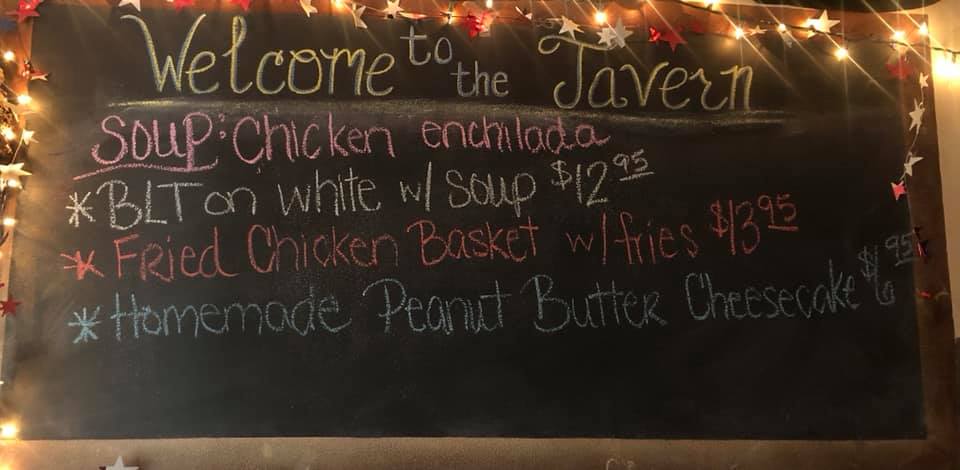 Welcome to the Tavern
Soup: Chicken enchilada
*BLT on white w/ soup $12.95
*Fried Chicken Basket w/ fries $13.95
*Homemade Peanut Butter Cheesecake $6.95